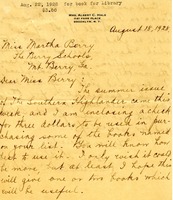 Aug. 20, 1925 for book for Library
$3.00
MRS. ALBERT C. HALE
BROOKLYN, N.Y.
August 18, 1925
Miss Martha Berry
The Berry Schools,
Mt. Berry, Ga.
Dear Miss Berry:
The summer issue
of The Southern Highlander came this
week and I am inclosing a check
for three dollars to be used in pur-
chasing some of the books named
on your list. You will know how
best to use it. I only wish it could
be more, but at least I hope this
will give one or two books which
will be useful.